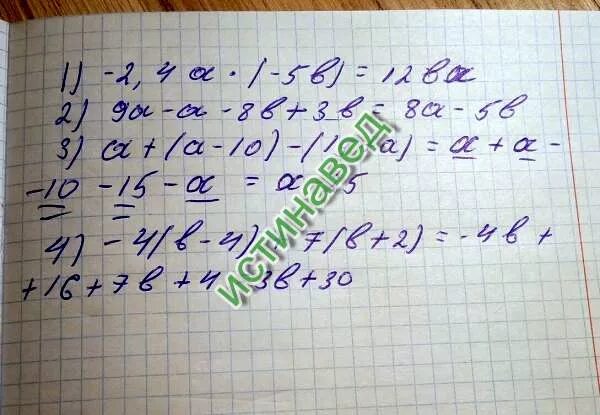 1) -2,4a·(-5в) = 12ва
2) 9а-а-8в+3в = 8а-5в
3) а+(а-10)-(1 а) = а+а-
-10-15-а = а 5
4) -4(в-4) 7(в+2) = -4в+
+16+7в+ 3в+30
истинавед